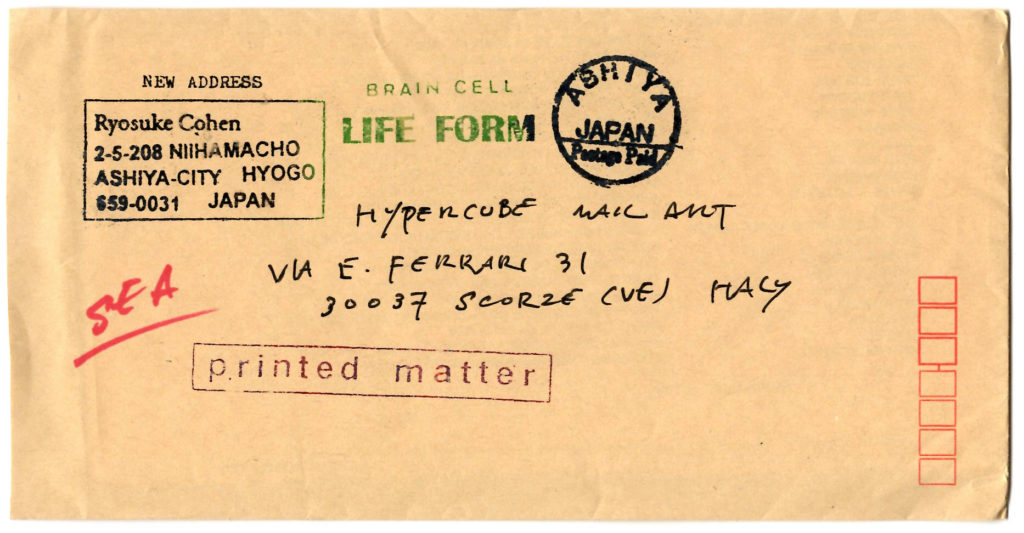 NEW ADDRESS
Ryosuke Cohen
2-5-208 NIIHAMACHO
ASHIYA-CITY HYOGO
659-0031 JAPAN
BRAIN CELL
LIFE FORM
ASHIYA
JAPAN
Postage Paid
HYPERCUBE MAIL ART
VIA E. FERRARI 31
30037 SCORZE (VE) ITALY
SEA
printed matter